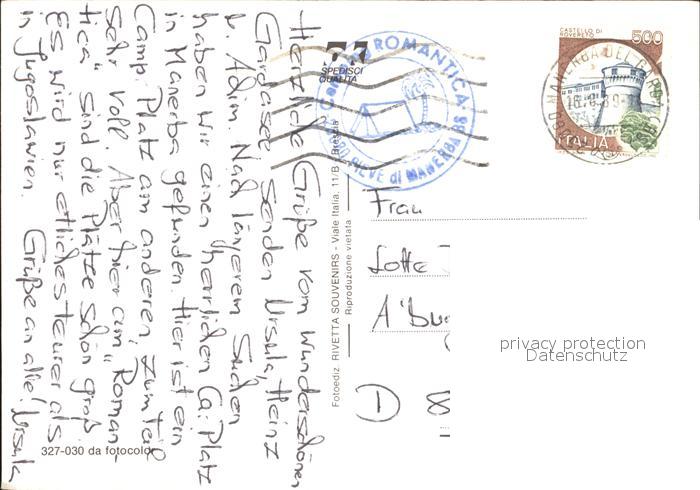 Herzliche Grüße vom wunderschönen
Gardasee senden Ursula, Heinz
u. Achim. Nach längerem Suchen
haben wir einen herrlichen Ca. Platz
in Manerba gefunden. Hier ist ein
Camp. Platz am anderen, zum Teil
sehr voll. Aber hier am „Roman-
tica" sind die Plätze schön groß.
Es wird nur etliches teurer als
in Jugoslawien. Grüße an alle! Ursula
327-030 da fotocolor
Fotoediz. RIVETTA SOUVENIRS - Viale Italia, 11/B - Brescia
Riproduzione vietata
SPEDISCI
QUALITÀ
ROMANTICA
PIEVE di MANERBA BS
CASTELLO DI
ROVERETO
500
ITALIA
MANERBA DEL GARDA
Frau
Lotte
A'bu
D 8
privacy protection
Datenschutz